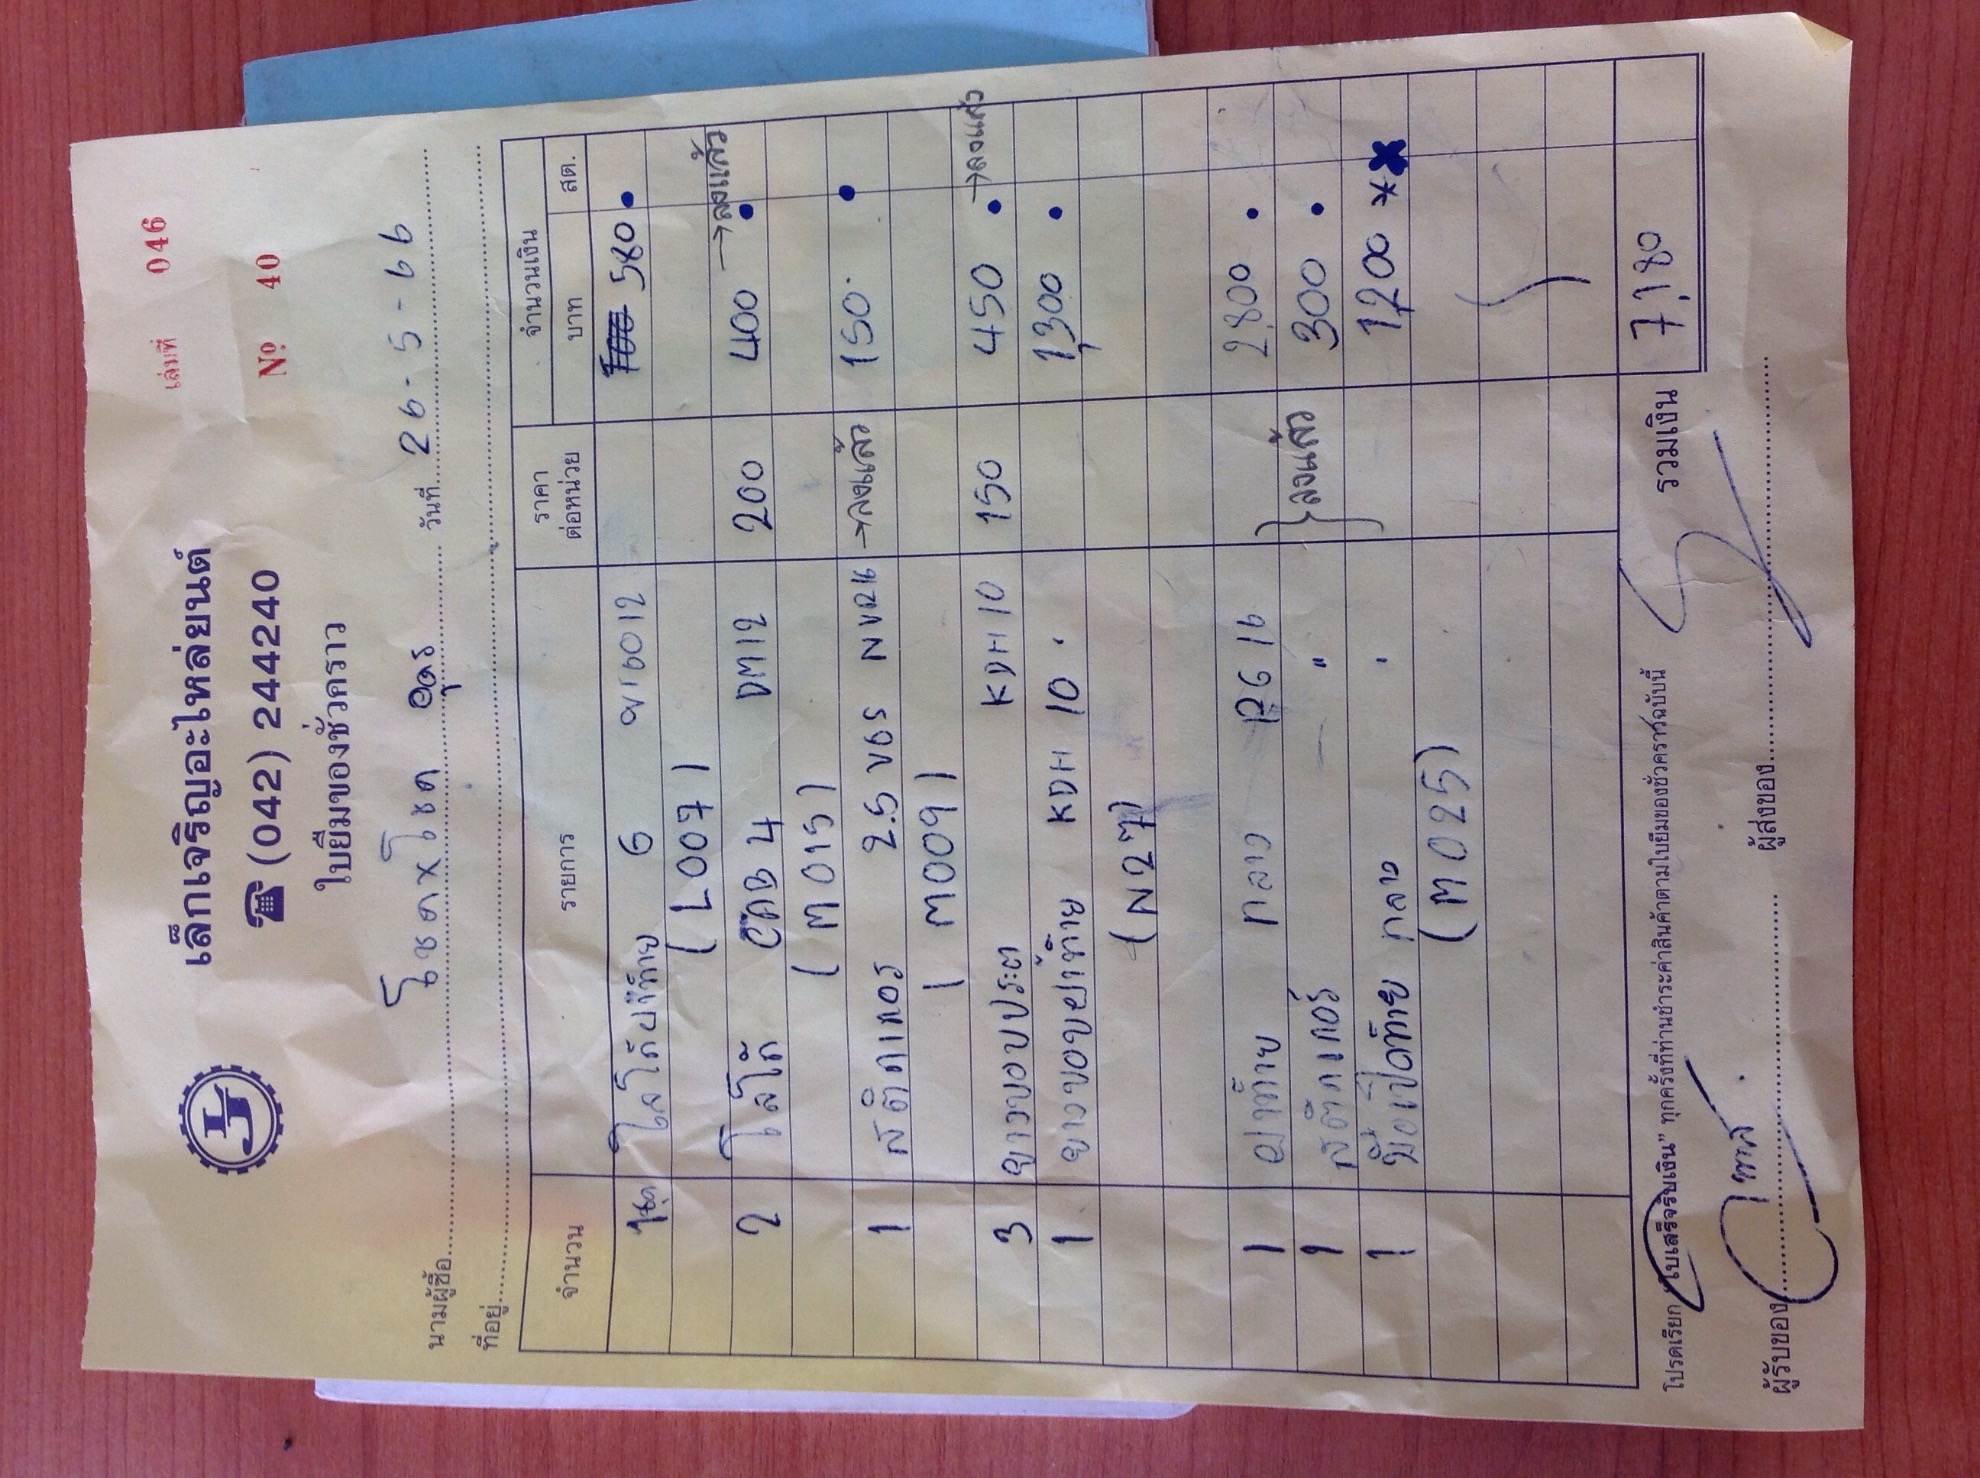 เล่มที่ 046
เล็กเจริญอะไหล่ยนต์
☎ (042) 244240
Nº 40
ใบยืมของชั่วคราว
นามผู้ซื้อ โชค x โชค อุดร วันที่ 26-5-66
ที่อยู่
จำนวน รายการ ราคาต่อหน่วย จำนวนเงิน
บาท สต.
1ชุด โลโก้ฝาท้าย 6 580
(L007)
2 โลโก้ 4 DM12 200 400 → ลงแล้ว
(M015)
1 สติกเกอร์ 2.5 → ลงแล้ว 150
(M009)
3 ยางขอบประตู KDH 10 150 450 → ลงแล้ว
1 ยางขอบฝาท้าย KDH 10 1,300
(N27)
1 ฝาท้าย กลาง 2,800
1 สติกเกอร์ " } ลงแล้ว 300
1 มือเปิดท้าย กลาง 1,200
(M025)
รวมเงิน 7,180
โปรดเรียก "ใบเสร็จรับเงิน" ทุกครั้งที่ท่านชำระค่าสินค้าตามใบยืมของชั่วคราวฉบับนี้
ผู้รับของ ผู้ส่งของ